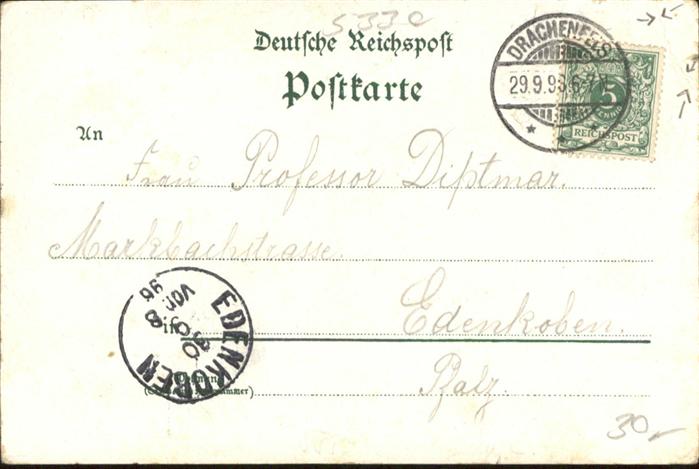 5330
Deutsche Reichspost
Postkarte
DRACHENFELS
29.9.96 6-7 N
5
REICHSPOST
An
Frau Professor Diftmar.
Markbachstrasse.
EDENKOBEN
30
VOR. 8
96
in
Edenkoben.
Pfalz.
30